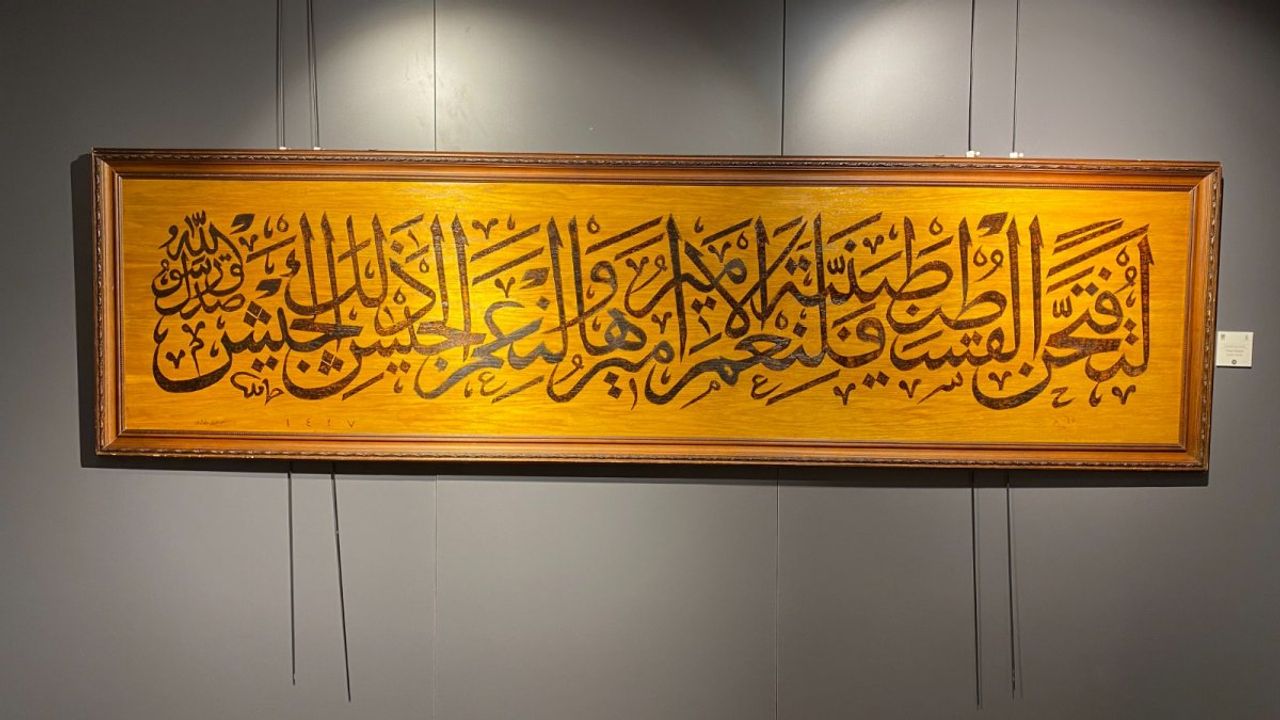 لتفتحن القسطنطينية فلنعم الامير اميرها ولنعم الجيش ذلك الجيش صدق رسول الله
١٤٢٧